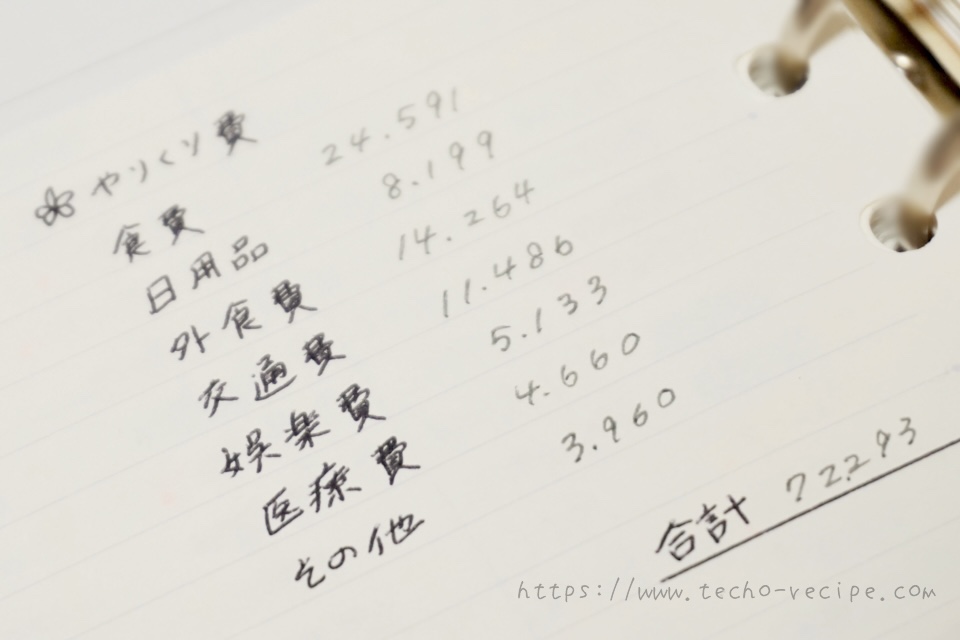 やりくり費
食費 24.591
日用品 8.199
外食費 14.264
交通費 11.486
娯楽費 5.133
医療費 4.660
その他 3.960
合計 72.293
https://www.techo-recipe.com